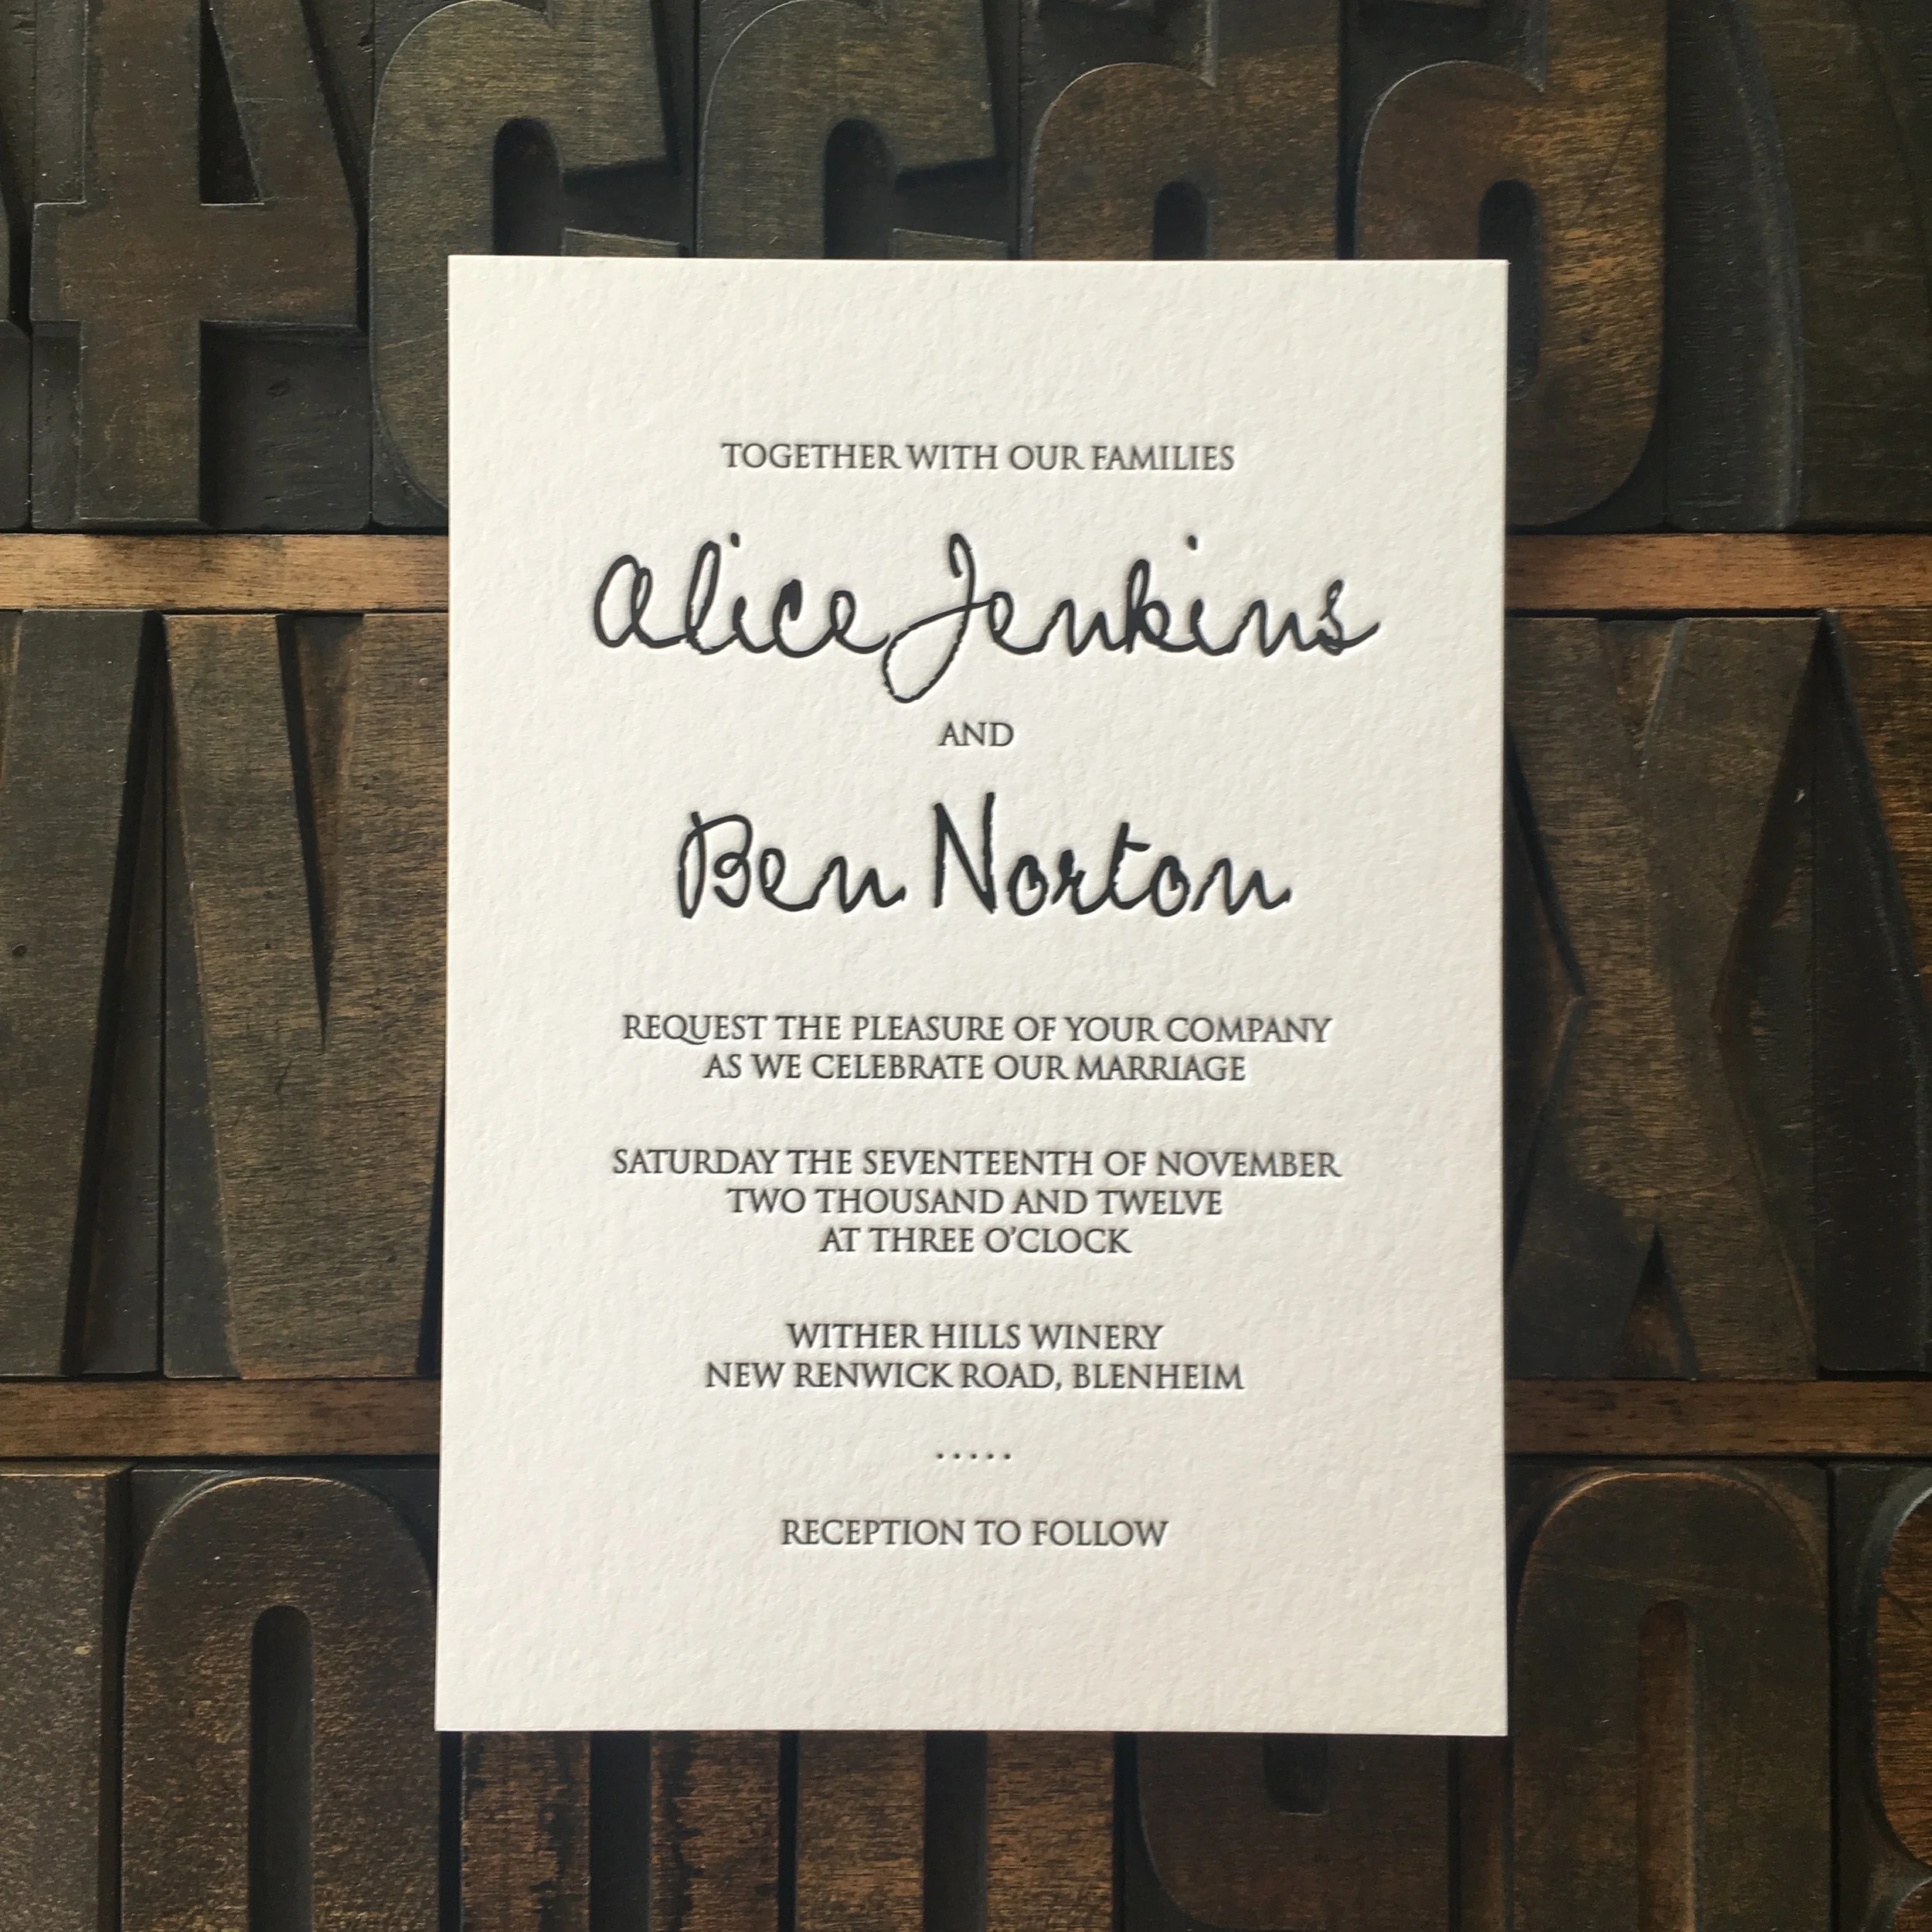 TOGETHER WITH OUR FAMILIES
Alice Jenkins
AND
Ben Norton
REQUEST THE PLEASURE OF YOUR COMPANY
AS WE CELEBRATE OUR MARRIAGE
SATURDAY THE SEVENTEENTH OF NOVEMBER
TWO THOUSAND AND TWELVE
AT THREE O'CLOCK
WITHER HILLS WINERY
NEW RENWICK ROAD, BLENHEIM
.....
RECEPTION TO FOLLOW